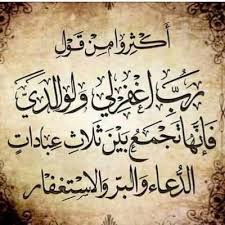 أكثروا من قول
ربِّ اغفر لي ولوالديَّ
فإنها تجمع بين ثلاث عبادات
الدعاء والبر والاستغفار